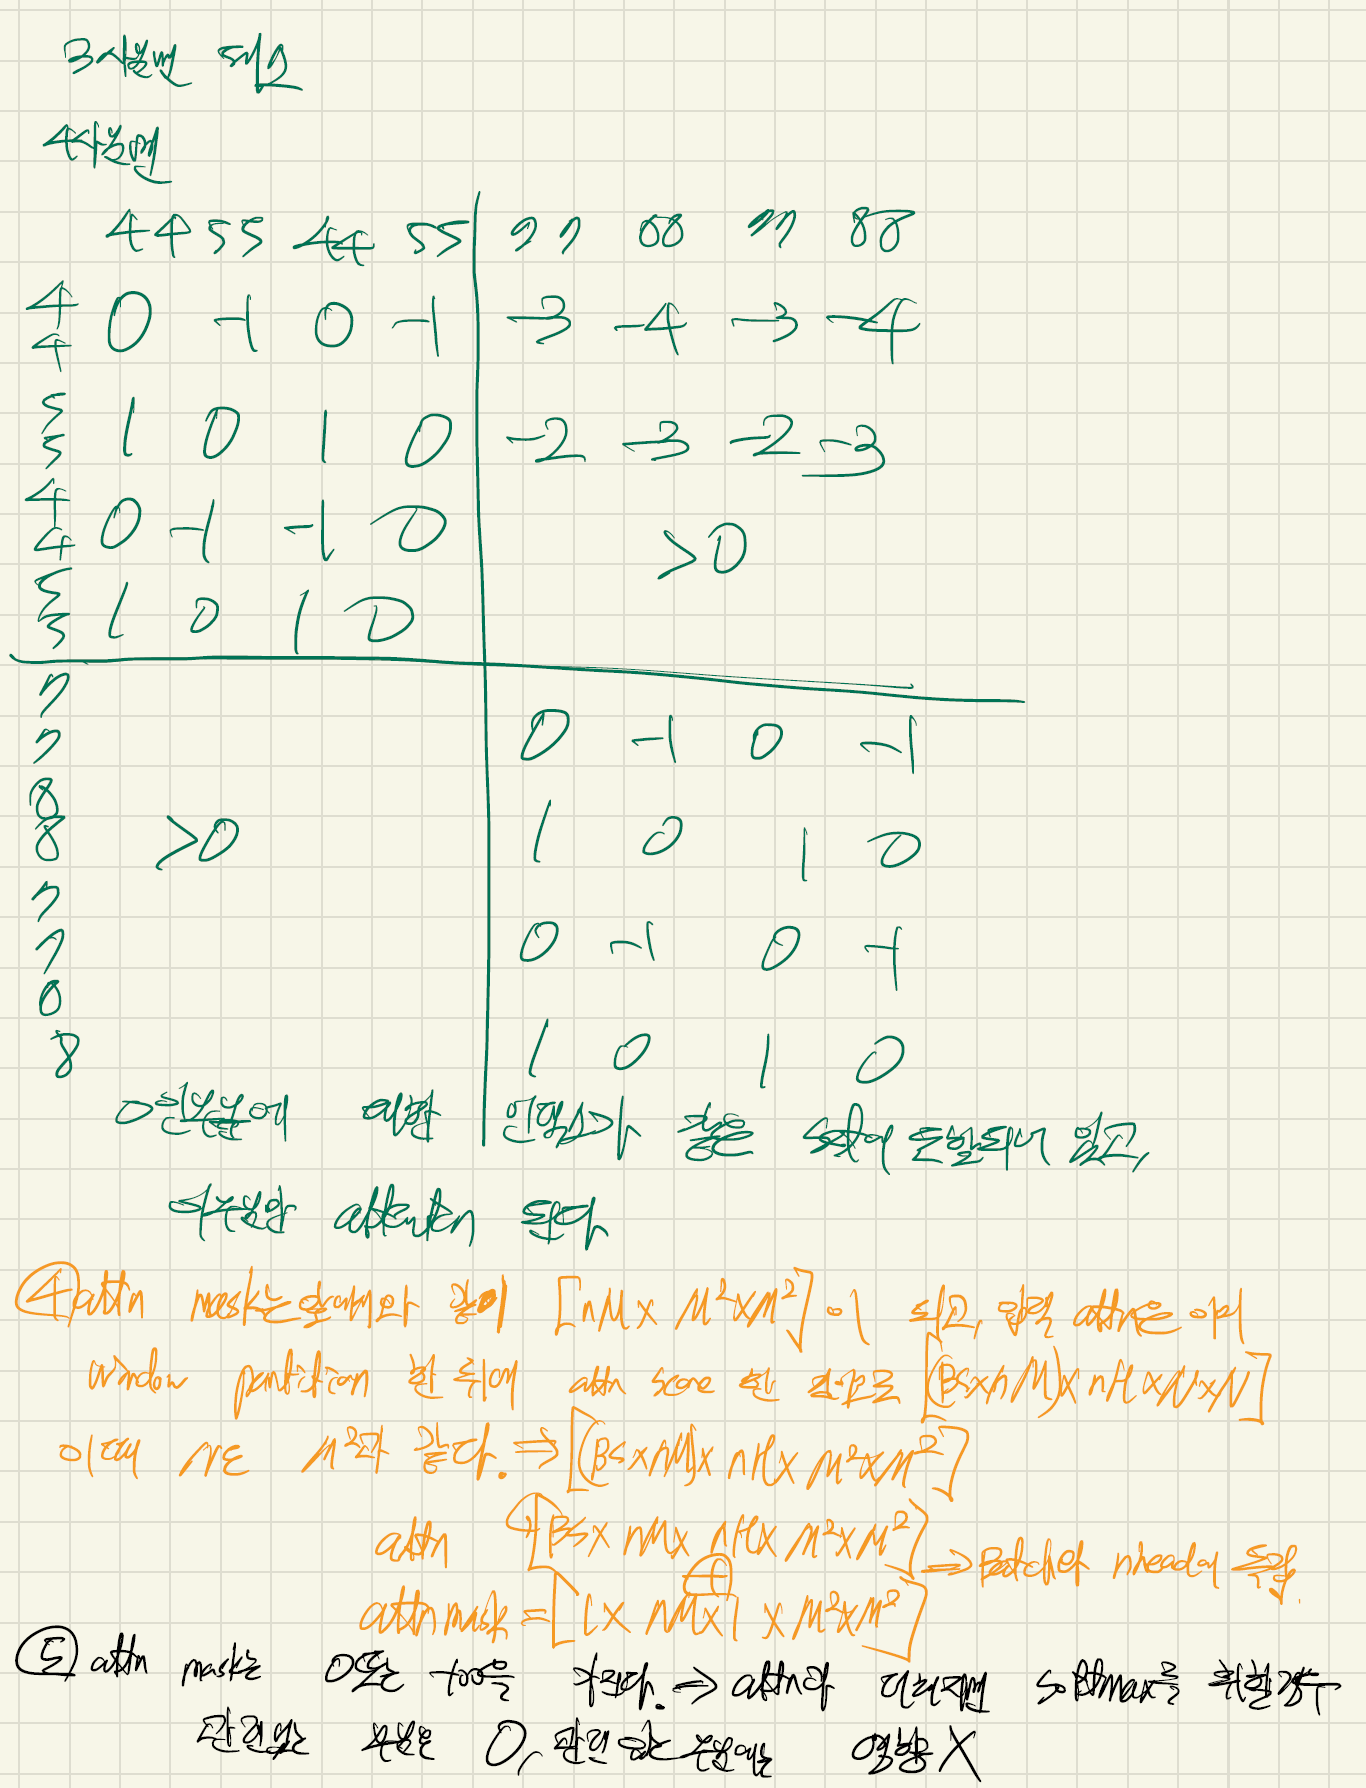 3사분면 패스
4사분면
44 55 44 55 77 88 77 88
44 0 -1 0 -1 -3 -4 -3 -4
55 1 0 1 0 -2 -3 -2 -3
44 0 -1 -1 0 >0
55 1 0 1 0
77 0 -1 0 -1
88 >0 1 0 1 0
77 0 -1 0 -1
8 1 0 1 0
0인부분에 대한 인덱스가 같은 set에 포함되어 있고,
이부분만 attention 된다
④ attn mask는 앞에서와 같이 [nM x M²xM²]이 되고, 입력 attn은 이미
window partition 한 뒤에 attn score 한 값으로 [(BSxnM)x nH xNxN]
이때 N은 M²과 같다. ⇒ [(BSxnM)x nHx M²xM²]
attn [BSx nMx nHx M²xM²]
⊕ ⇒ Batch와 nhead에 동일
attn mask = [1x nMx1 x M²xM²]
⑤ attn mask는 0또는 을 가진다. → attn과 더해지면 softmax를 취할경우
관련없는 부분은 0, 관련있는 부분에는 영향 X